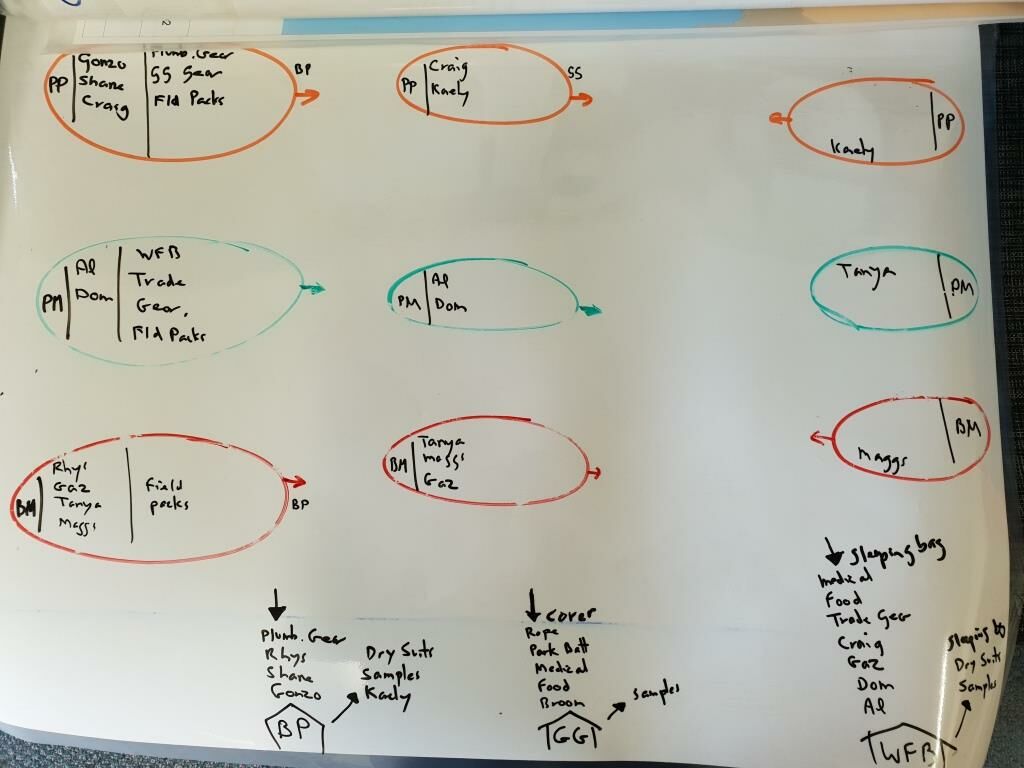 2
PP
Gonzo
Shane
Craig
Plumb. Gear
GS Gear
Fld Packs
BP
PP
Craig
Kaely
SS
Kaely
PP
PM
Al
Dom
WFB
Trade
Gear,
Fld Packs
PM
Al
Dom
Tanya
PM
BM
Rhys
Gaz
Tanya
Maggs
Field
packs
BP
BM
Tanya
Maggs
Gaz
Maggs
BM
Plumb. Gear
Rhys
Shane
Gonzo
BP
Dry Suits
Samples
Kaely
cover
Rope
Park Batt
Medical
Food
Broom
GG
Samples
sleeping bag
medical
Food
Trade Gear
Craig
Gaz
Dom
Al
WFB
sleeping bg
Dry Suits
Samples